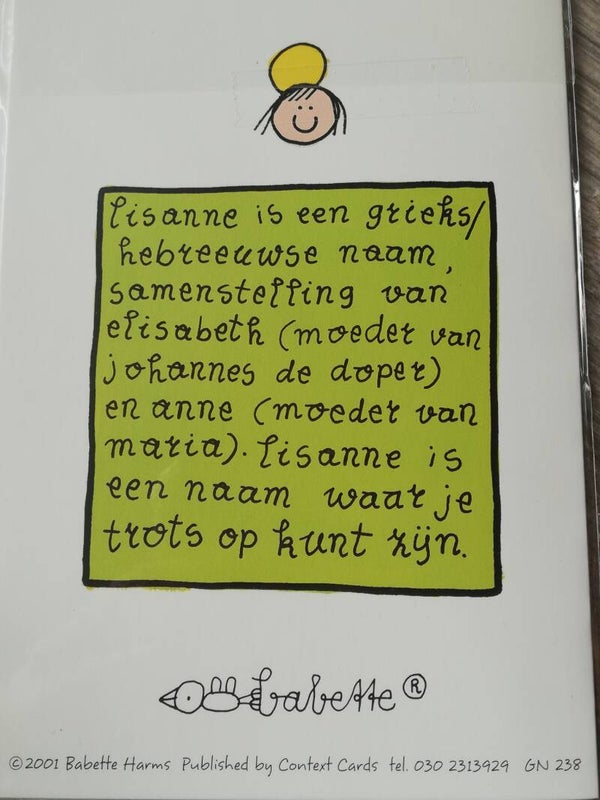 lisanne is een grieks/
hebreeuwse naam,
samenstelling van
elisabeth (moeder van
johannes de doper)
en anne (moeder van
maria). lisanne is
een naam waar je
trots op kunt zijn.
babette ®
©2001 Babette Harms Published by Context Cards tel. 030 2313929 GN 238